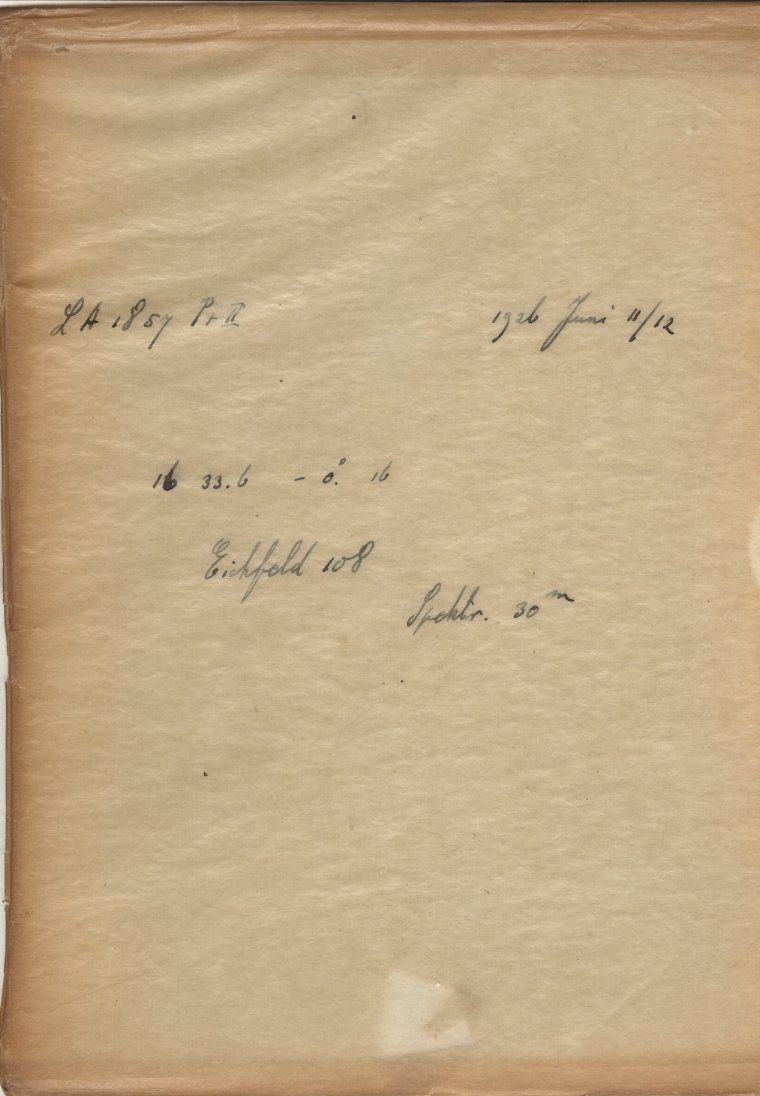 LA 1857 Pr II 1926 Juni 11/12
16 33.6 - 0°. 16
Eichfeld 108
Spektr. 30ᵐ